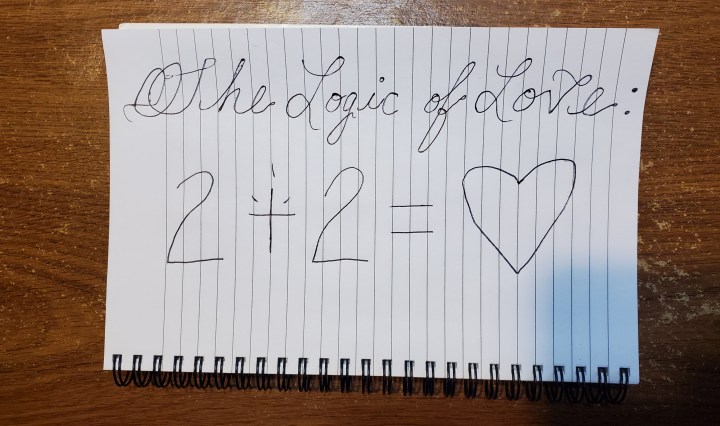 The Logic of Love:
2 + 2 = ♡